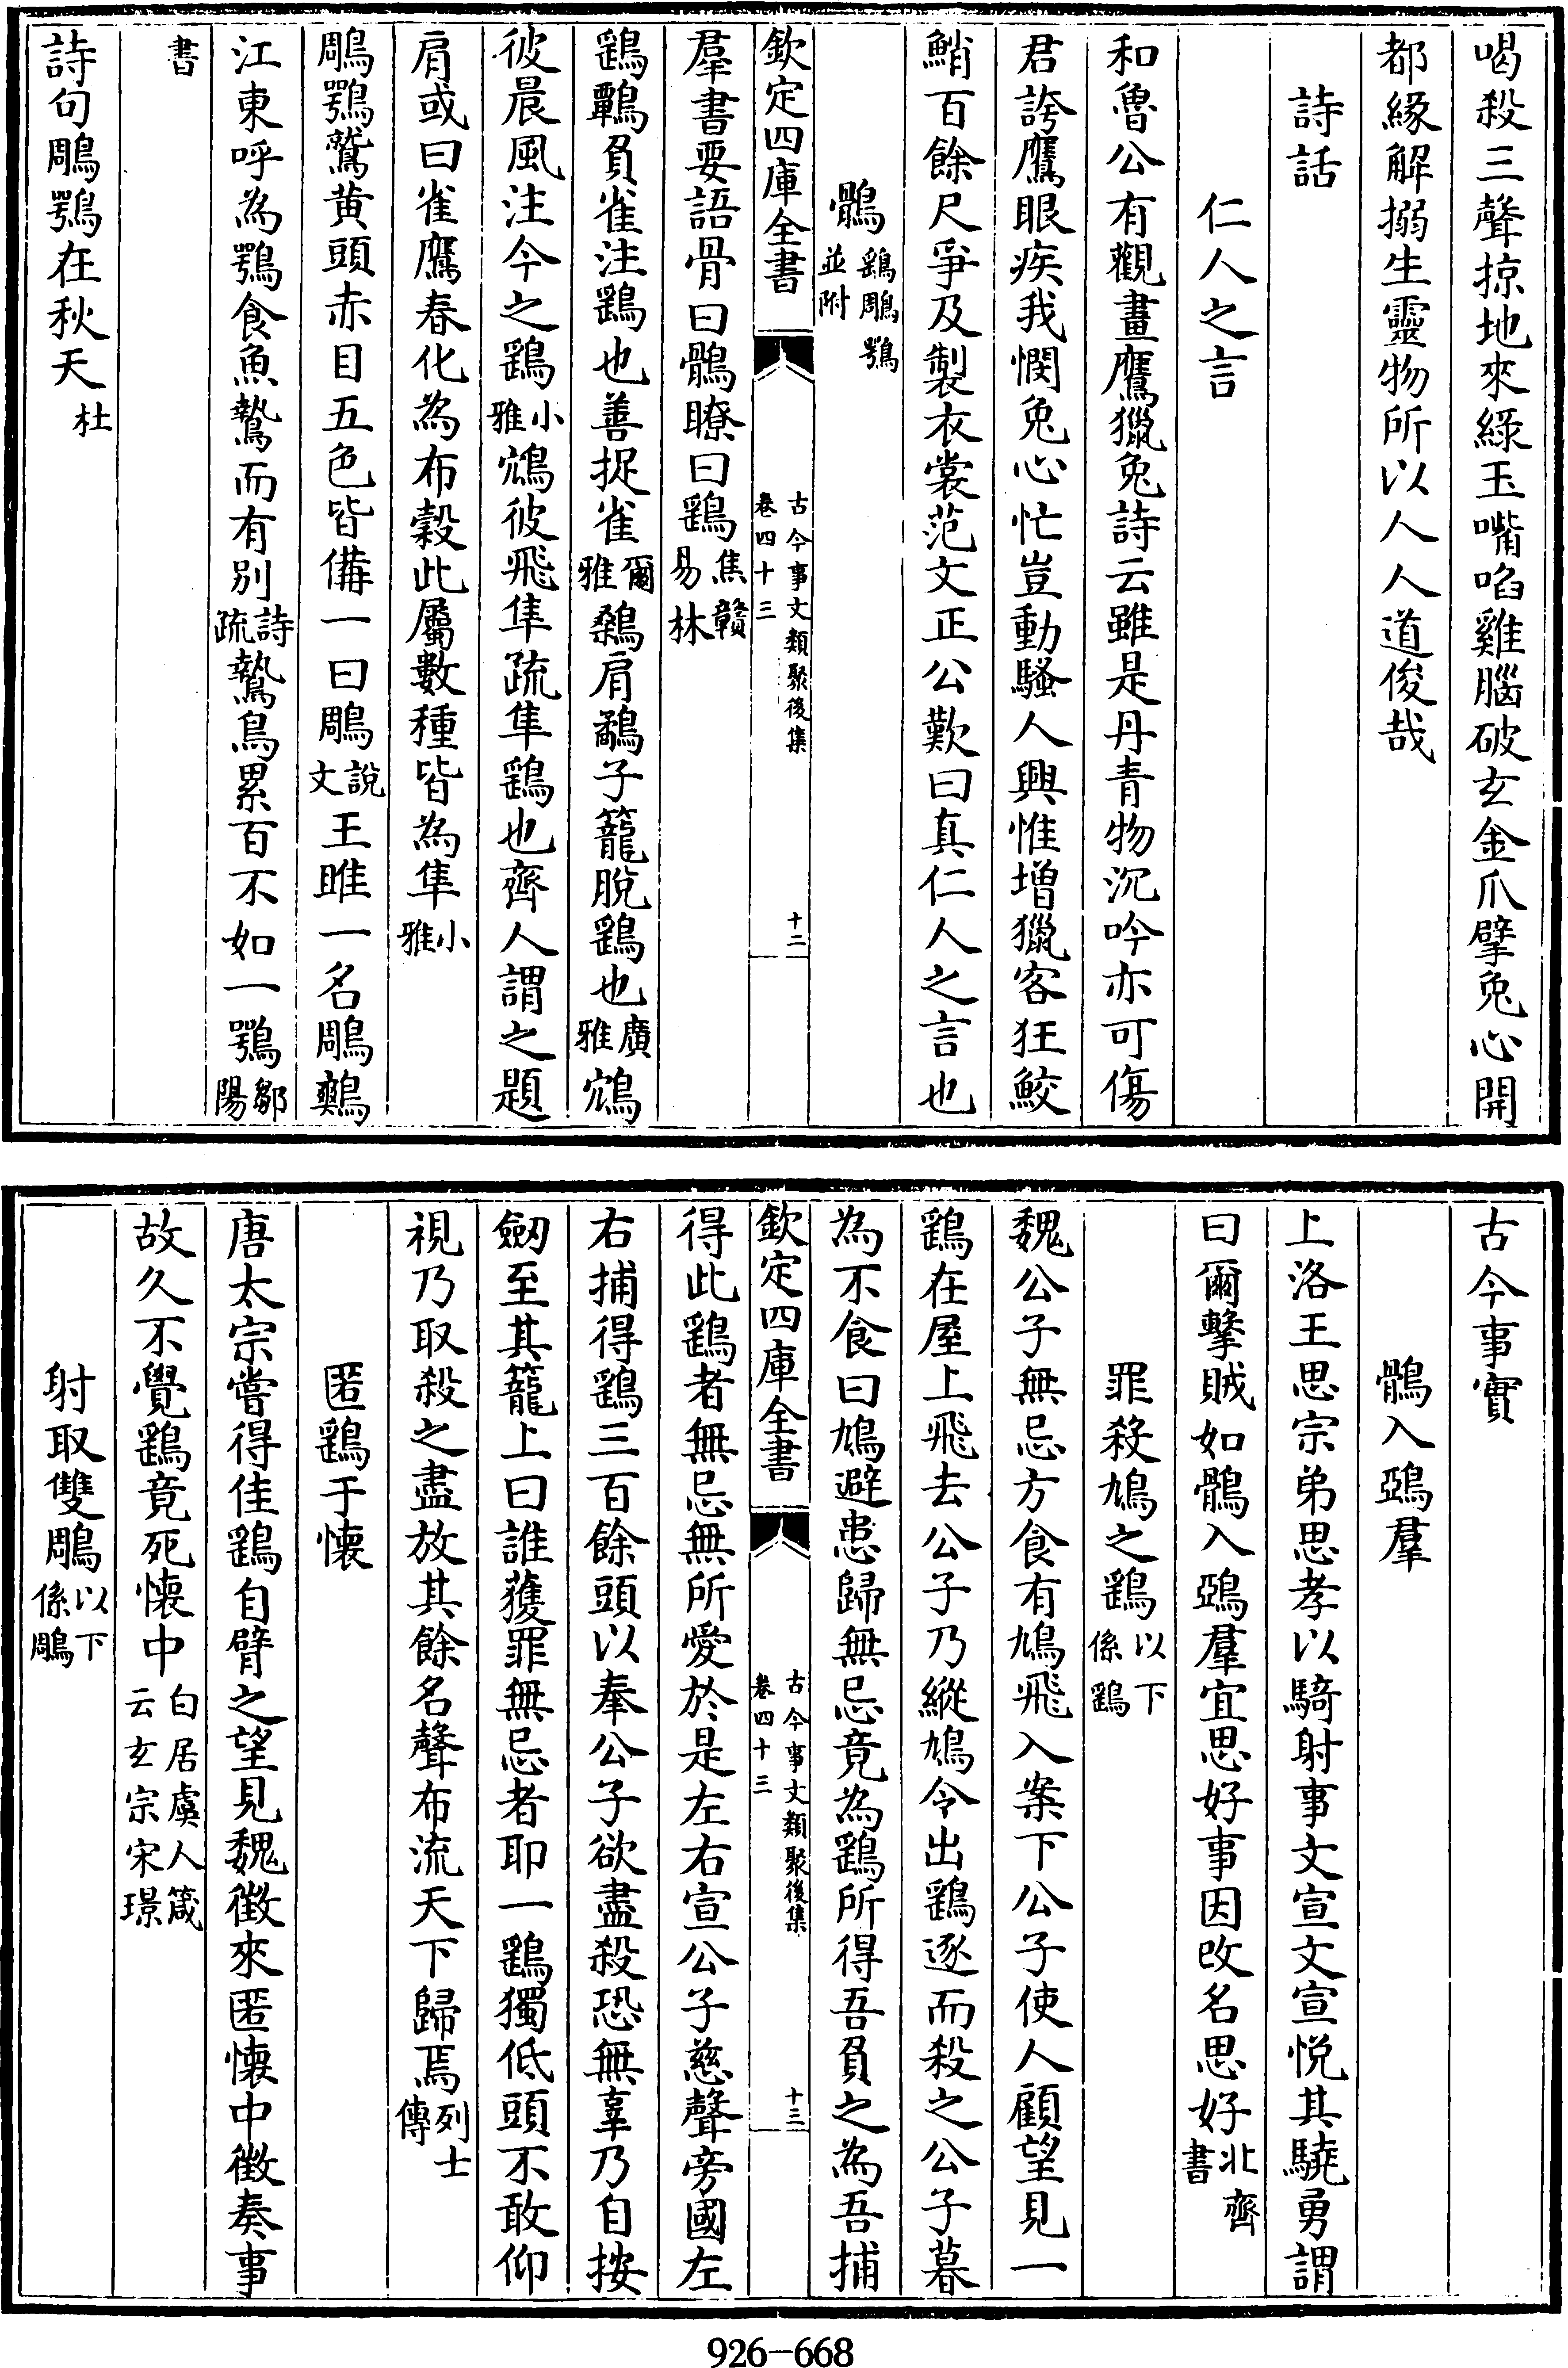 喝殺三聲掠地來綠玉嘴啗雞腦破玄金爪擘兔心開
都緣解搦生靈物所以人人道俊哉
詩話
仁人之言
和魯公有觀畫鷹獵兔詩云雖是丹青物沉吟亦可傷
君誇鷹眼疾我憫兔心忙豈動騷人興惟增獵客狂鮫
鮹百餘尺爭及製衣裳范文正公歎曰真仁人之言也
鶻鷂鵰鶚並附
欽定四庫全書 古今事文類聚後集 卷四十三 十二
羣書要語骨曰鶻瞭曰鷂焦贛易林
鷂鷣負雀注鷂也善捉雀爾雅鷞肩鷸子籠脫鷂也廣雅鴥
彼晨風注今之鷂小雅鴥彼飛隼疏隼鷂也齊人謂之題
肩或曰雀鷹春化為布穀此屬數種皆為隼小雅
鵰鶚鷲黃頭赤目五色皆備一曰鵰說文王雎一名鵰鷞
江東呼為鶚食魚鷙而有別詩疏鷙鳥累百不如一鶚鄒陽
書
詩句鵰鶚在秋天杜
古今事實
鶻入鵶羣
上洛王思宗弟思孝以騎射事文宣文宣悅其驍勇謂
曰爾擊賊如鶻入鵶羣宜思好事因改名思好北齊書
罪殺鳩之鷂以下係鷂
魏公子無忌方食有鳩飛入案下公子使人顧望見一
鷂在屋上飛去公子乃縱鳩令出鷂逐而殺之公子暮
為不食曰鳩避患歸無忌竟為鷂所得吾負之為吾捕
欽定四庫全書 古今事文類聚後集 卷四十三 十三
得此鷂者無忌無所愛於是左右宣公子慈聲旁國左
右捕得鷂三百餘頭以奉公子欲盡殺恐無辜乃自按
劒至其籠上曰誰獲罪無忌者耶一鷂獨低頭不敢仰
視乃取殺之盡放其餘名聲布流天下歸焉列士傳
匿鷂于懷
唐太宗嘗得佳鷂自臂之望見魏徵來匿懷中徵奏事
故久不覺鷂竟死懷中白居虞人箴云玄宗宋璟
射取雙鵰以下係鵰
926-668